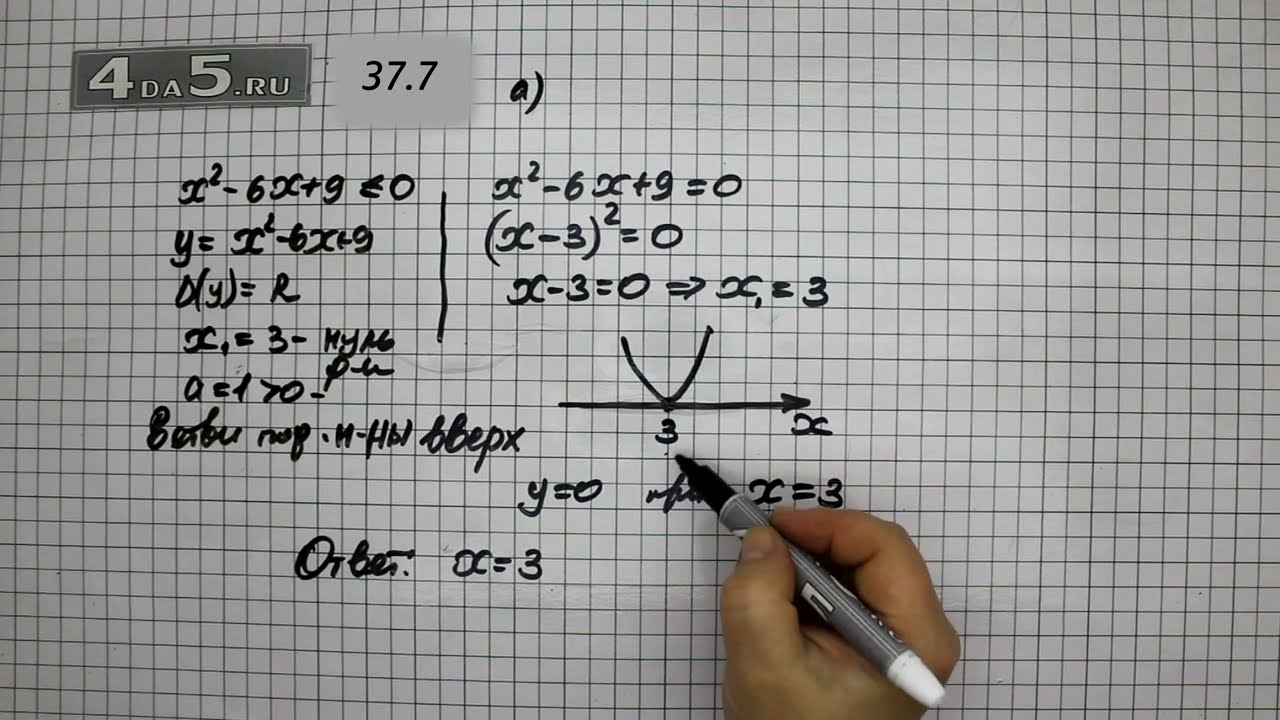 4DA5.RU
37.7
а)
x²-6x+9≤0
y=x²-6x+9
D(y)=R
x₁=3- нуль
ф-и
a=1>0-
Ветви пар.м-лы вверх
x²-6x+9=0
(x-3)²=0
x-3=0⇒x₁=3
3
x
y=0 x=3
Ответ: x=3